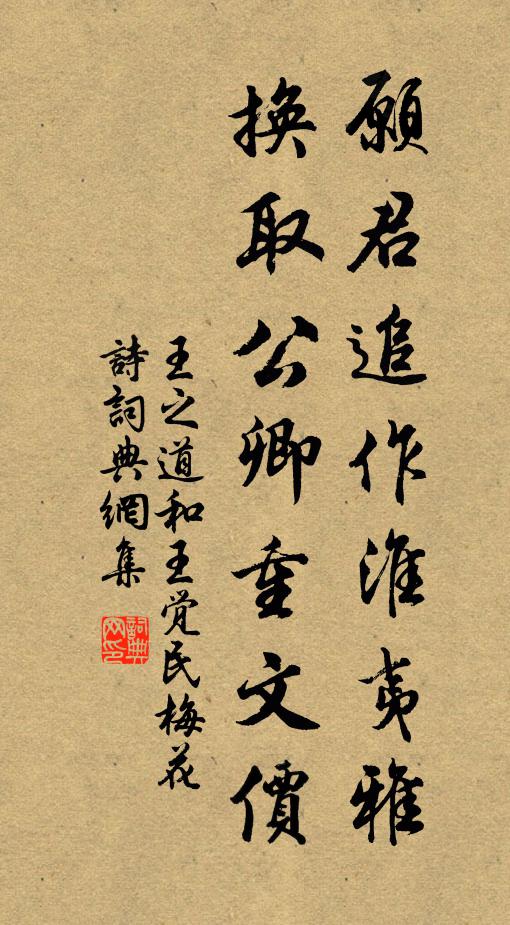 願君追作淮夷雅
換取公卿重文價
王之道和王觉民梅花
詩詞典網集
詞典
网印